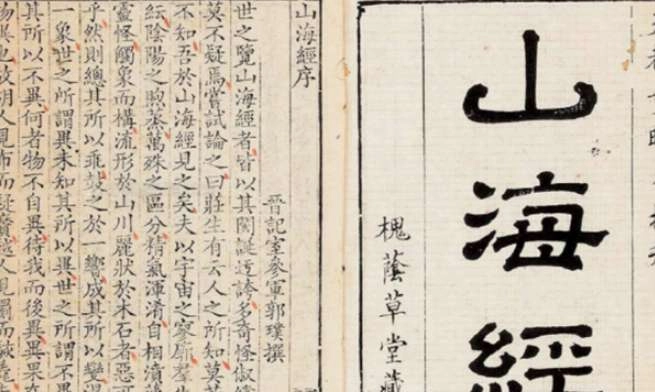 山海經
槐蔭草堂藏
山海經序
晉記室參軍郭璞撰
世之覽山海經者皆以其閎誕迂誇多奇怪俶
莫不疑焉嘗試論之曰莊生有云人之所知莫
不知吾於山海經見之矣夫以宇宙之寥廓羣生
紜陰陽之煦蒸萬殊之區分精氣渾淆自相濆薄
靈怪觸象而構流形於山川麗狀於木石者惡可
乎然則總其所以乖鼓之於一響成其所以變
一象世之所謂異未知其所以異世之所謂不異
其所以不異何者物不自異待我而後異異果在
物異也故胡人見布而疑黂越人見罽而駭